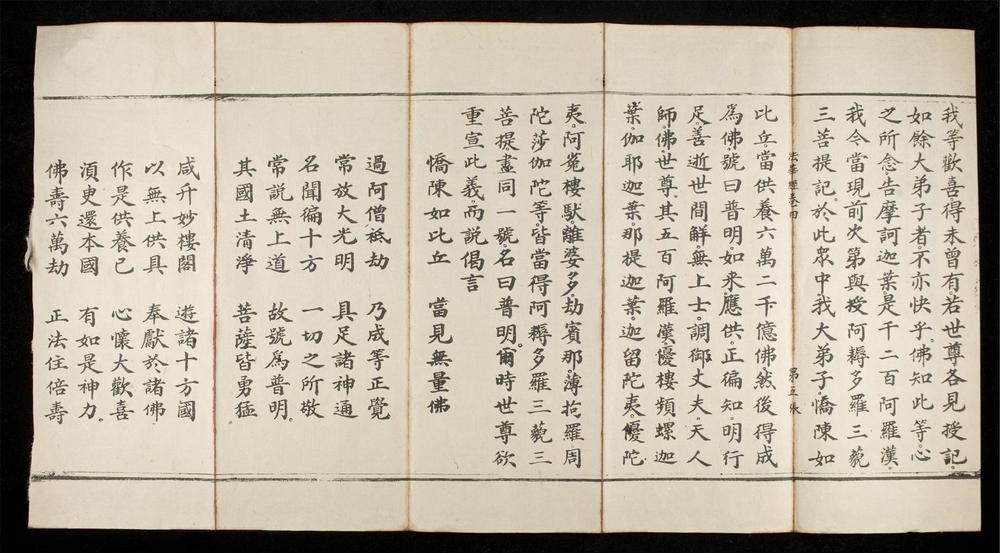 我等歡喜得未曾有若世尊各見授記。
如餘大弟子者。不亦快乎。佛知此等心
之所念告摩訶迦葉是千二百阿羅漢。
我今當現前次第與授阿耨多羅三藐
三菩提記。於此眾中我大弟子。憍陳如
法華經卷四 第五張
比丘。當供養六萬二千億佛。然後得成
為佛。號曰普明。如來應供。正徧知。明行
足。善逝世間解。無上士。調御丈夫。天人
師。佛。世尊。其五百阿羅漢。優樓頻螺迦
葉。伽耶迦葉。那提迦葉。迦留陀夷。優陀
夷。阿㝹樓馱。離婆多劫賓那。薄拘羅周
陀莎伽陀等。皆當得阿耨多羅三藐三
菩提盡同一號。名曰普明。爾時世尊欲
重宣此義。而說偈言
憍陳如比丘 當見無量佛
過阿僧祇劫 乃成等正覺
常放大光明 具足諸神通
名聞徧十方 一切之所敬
常說無上道 故號為普明。
其國土清淨 菩薩皆勇猛。
咸升妙樓閣 遊諸十方國
以無上供具 奉獻於諸佛
作是供養已 心懷大歡喜
須臾還本國 有如是神力。
佛壽六萬劫 正法住倍壽